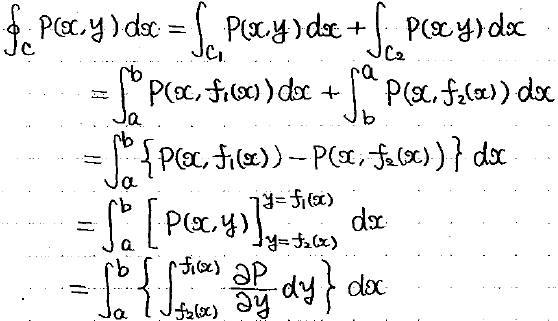 ∮_C P(x,y) dx = ∫_{C1} P(x,y) dx + ∫_{C2} P(x,y) dx
= ∫_a^b P(x, f₁(x)) dx + ∫_b^a P(x, f₂(x)) dx
= ∫_a^b { P(x, f₁(x)) − P(x, f₂(x)) } dx
= ∫_a^b [ P(x,y) ]_{y=f₂(x)}^{y=f₁(x)} dx
= ∫_a^b { ∫_{f₂(x)}^{f₁(x)} ∂P/∂y dy } dx